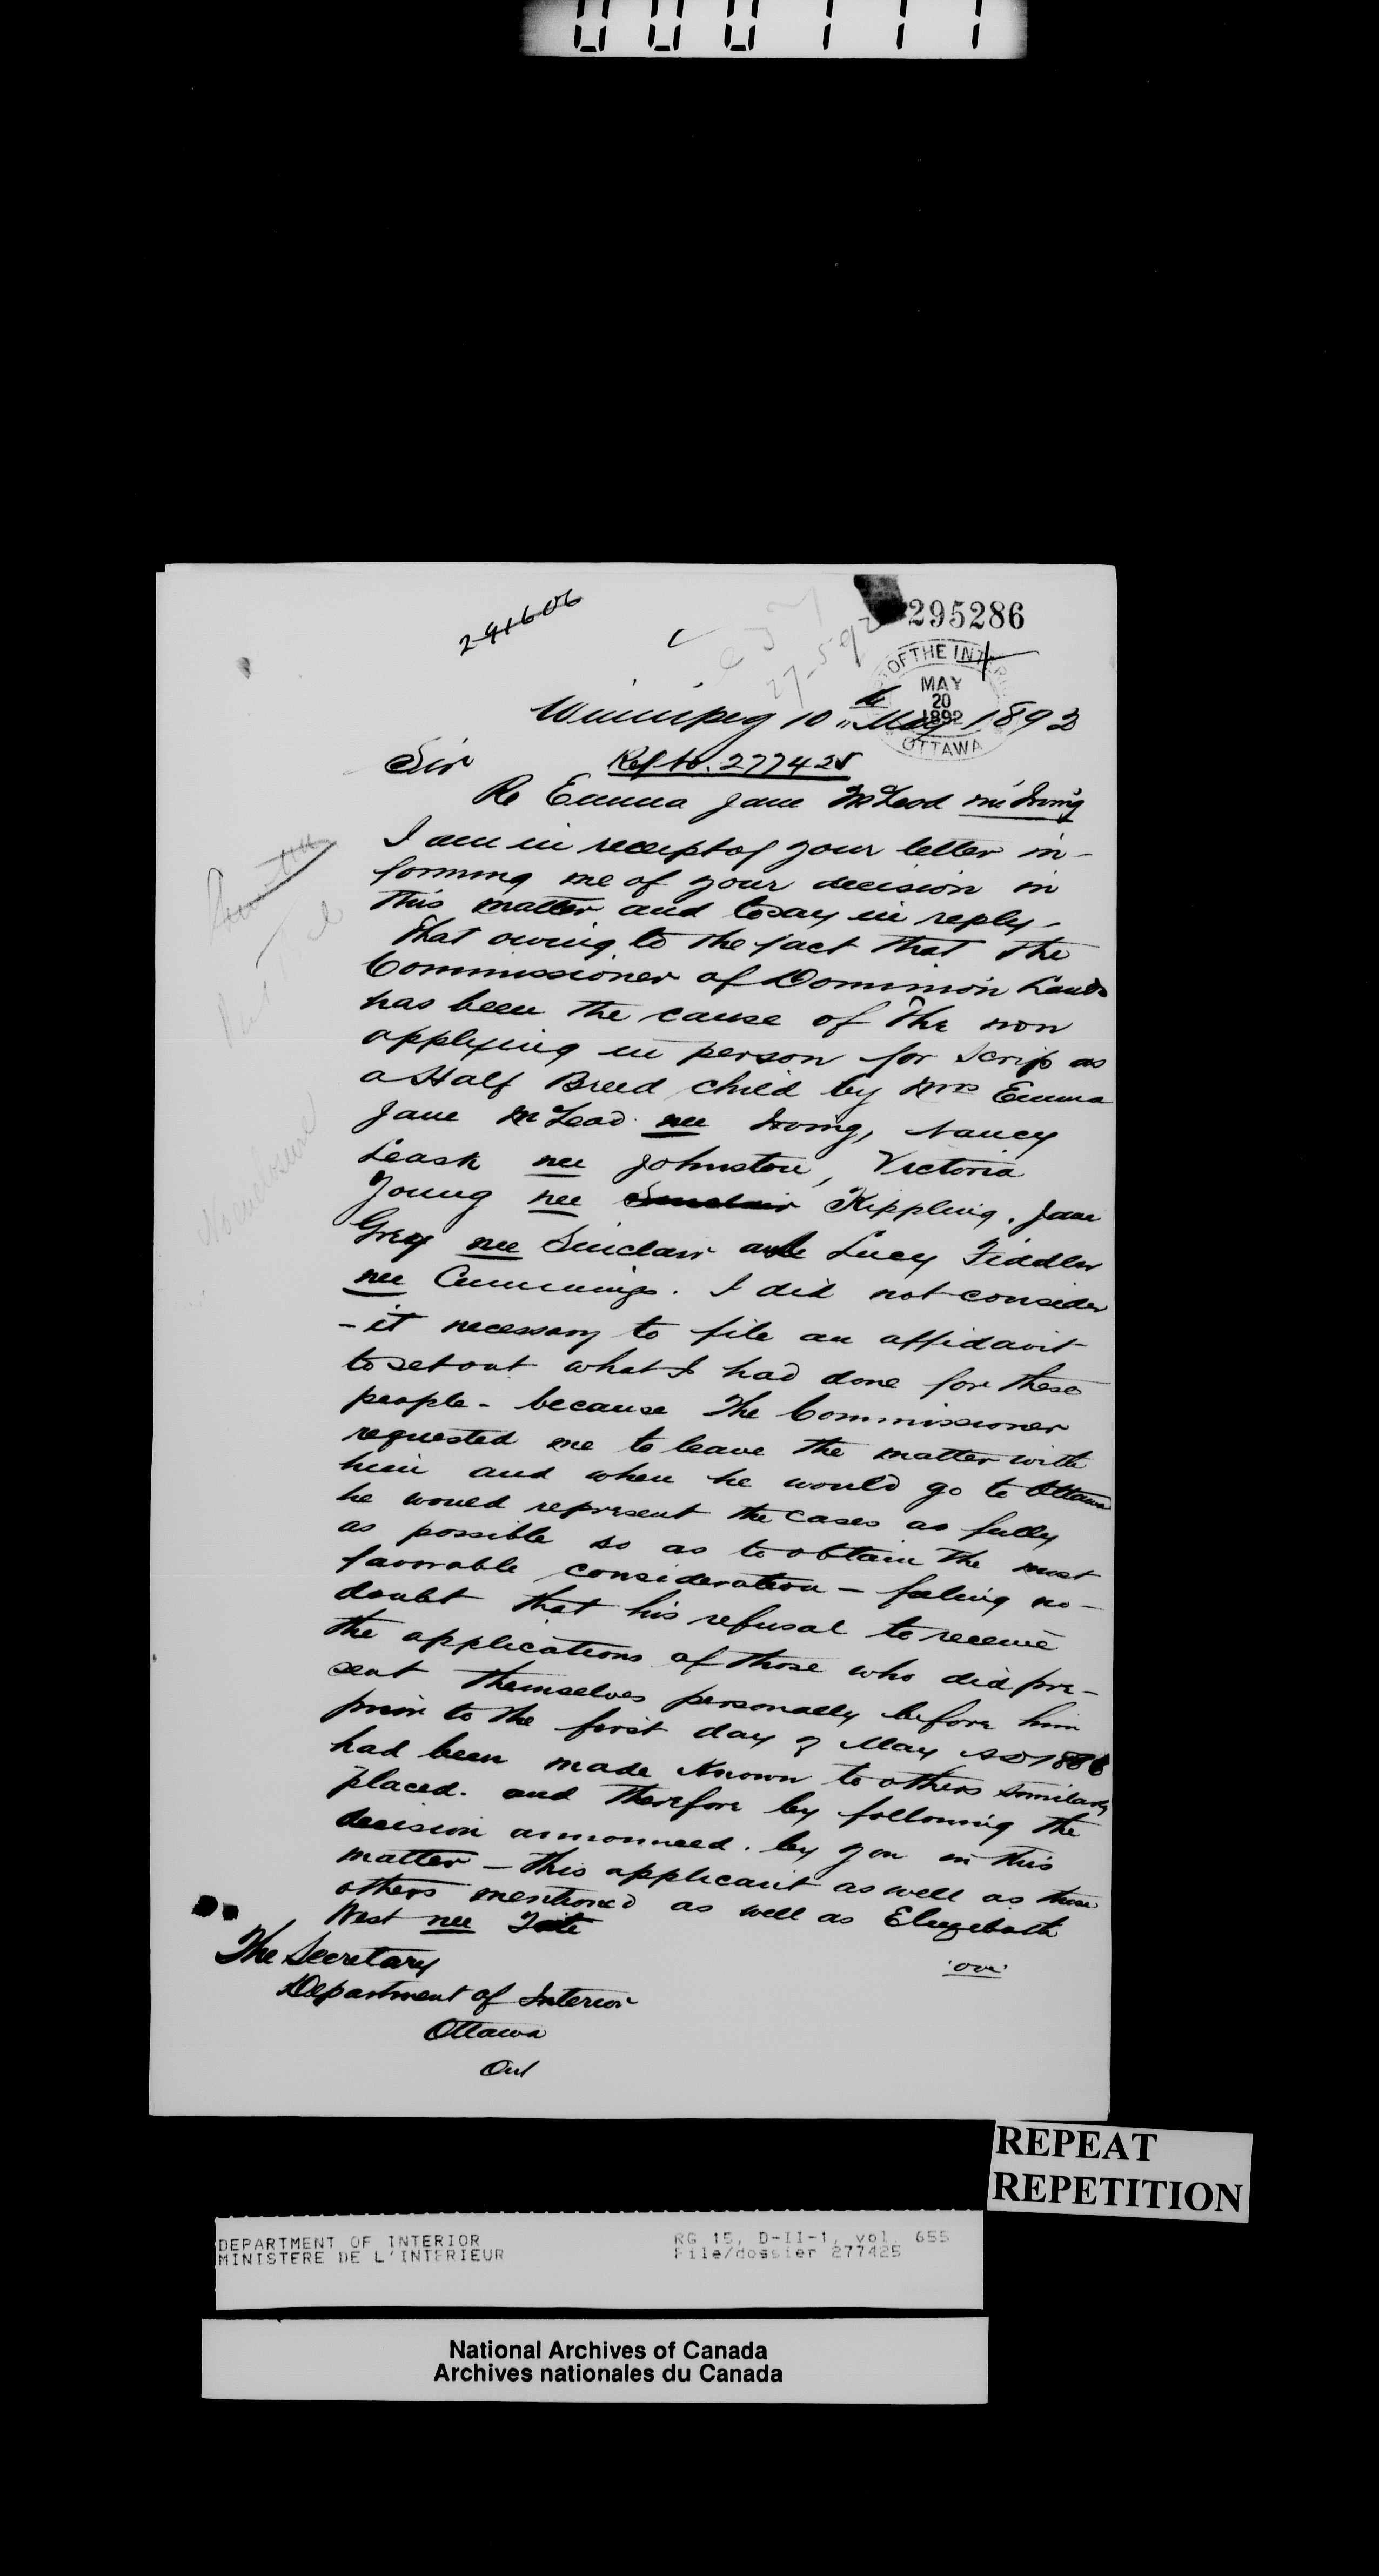 000111
291606
295286
27-5-92
OF THE INT
MAY
20
1892
OTTAWA
Winnipeg 10th May 1892
Sir
Ref to. 277425
Re Emma Jane McLeod neé Irving
I am in receipt of your letter in-
forming me of your decision in
this matter and to say in reply-
That owing to the fact that the
Commissioner of Dominion Lands
has been the cause of the non
applying in person for Scrip as
a Half Breed child by Mrs Emma
Jane McLeod nee Irving, Nancy
Leask nee Johnston, Victoria
Young nee Sinclair Kippling. Jane
Grey nee Sinclair and Lucy Fiddler
nee Cummings. I did not consider
- it necessary to file an affidavit
to set out what I had done for these
people - because the Commissioner
requested me to leave the matter with
him and when he would go to Ottawa
he would represent the cases as fully
as possible so as to obtain the most
favorable consideration - feeling no-
doubt that his refusal to receive
the applications of those who did pre-
sent themselves personally before him
prior to the first day of May AD 1886
had been made known to others similarly
placed. and therefore by following the
decision announced. by you in this
matter - this applicant as well as those
others mentioned as well as Elizabeth
West nee Tate
over
The Secretary
Department of Interior
Ottawa
Ont
No enclosure
REPEAT
REPETITION
DEPARTMENT OF INTERIOR
MINISTERE DE L'INTERIEUR
RG 15, D-II-1, vol. 655
File/dossier 277425
National Archives of Canada
Archives nationales du Canada